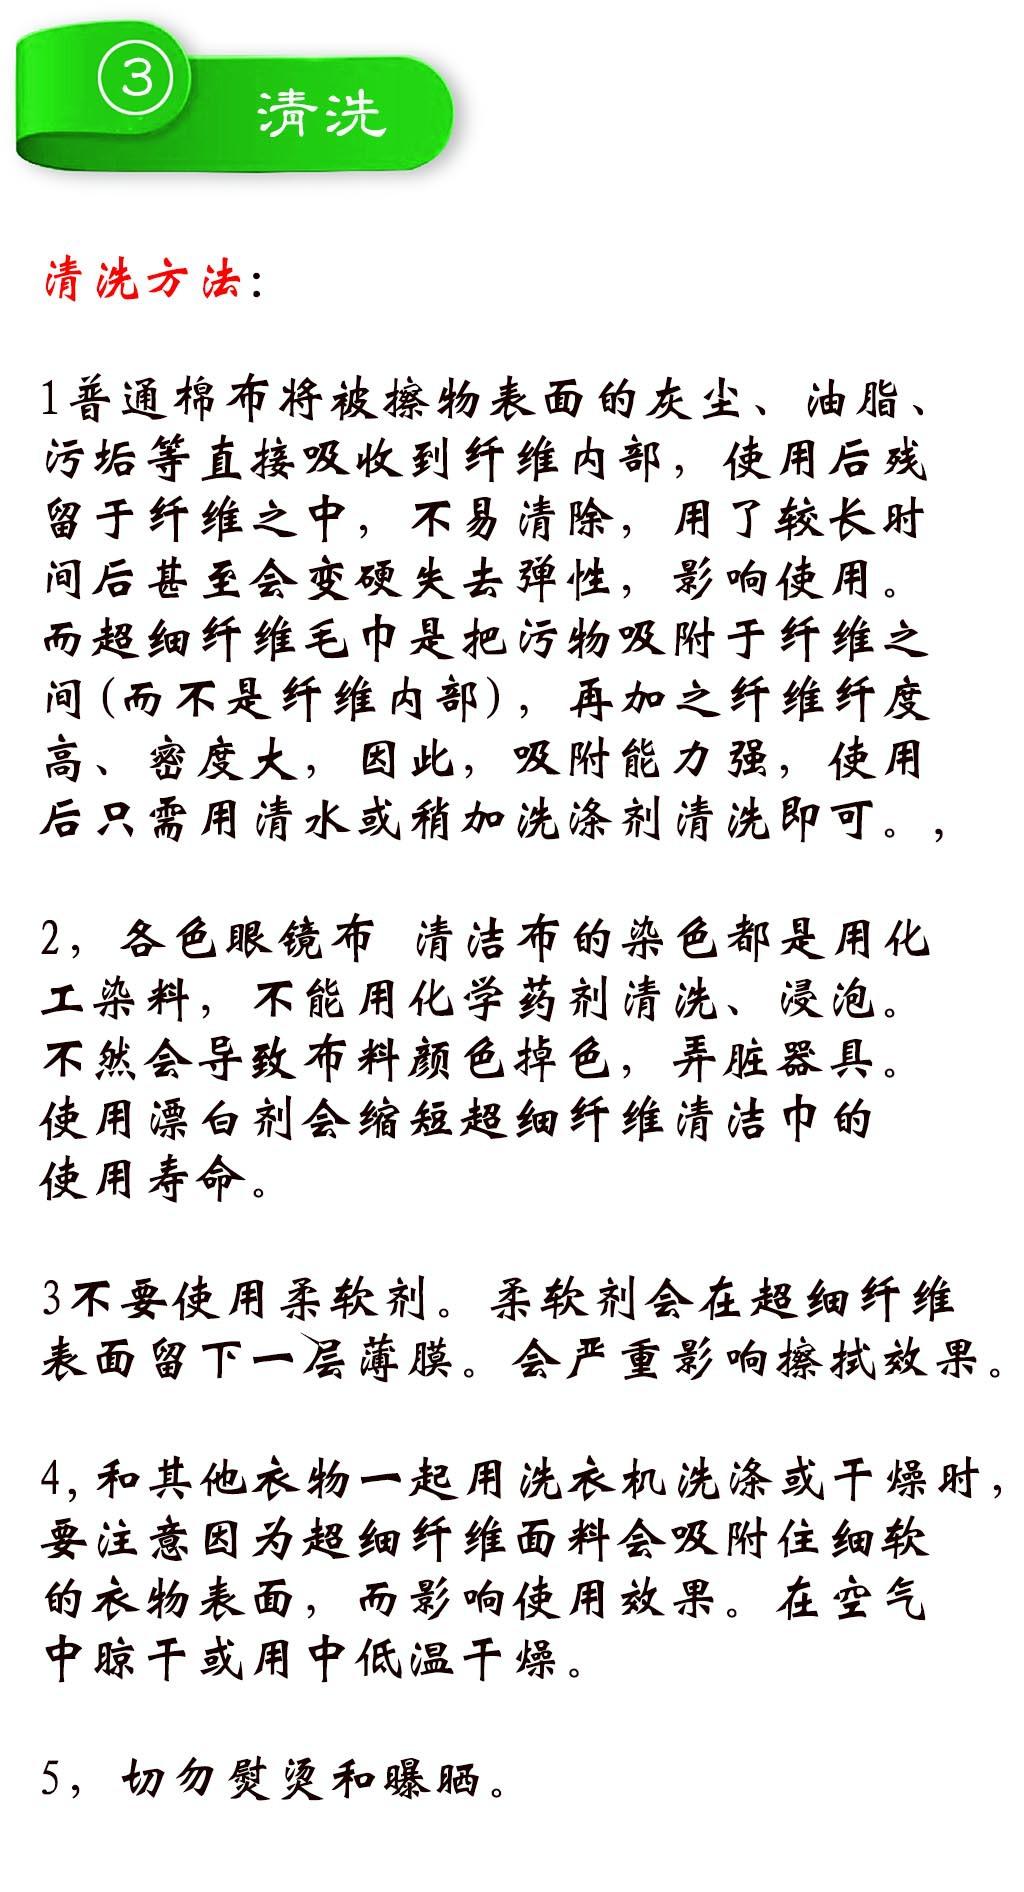 ③
清洗
清洗方法:
1普通棉布将被擦物表面的灰尘、油脂、
污垢等直接吸收到纤维内部，使用后残
留于纤维之中，不易清除，用了较长时
间后甚至会变硬失去弹性，影响使用。
而超细纤维毛巾是把污物吸附于纤维之
间(而不是纤维内部)，再加之纤维纤度
高、密度大，因此，吸附能力强，使用
后只需用清水或稍加洗涤剂清洗即可。,
2，各色眼镜布 清洁布的染色都是用化
工染料，不能用化学药剂清洗、浸泡。
不然会导致布料颜色掉色，弄脏器具。
使用漂白剂会缩短超细纤维清洁巾的
使用寿命。
3不要使用柔软剂。柔软剂会在超细纤维
表面留下一层薄膜。会严重影响擦拭效果。
4,和其他衣物一起用洗衣机洗涤或干燥时，
要注意因为超细纤维面料会吸附住细软
的衣物表面，而影响使用效果。在空气
中晾干或用中低温干燥。
5，切勿熨烫和曝晒。